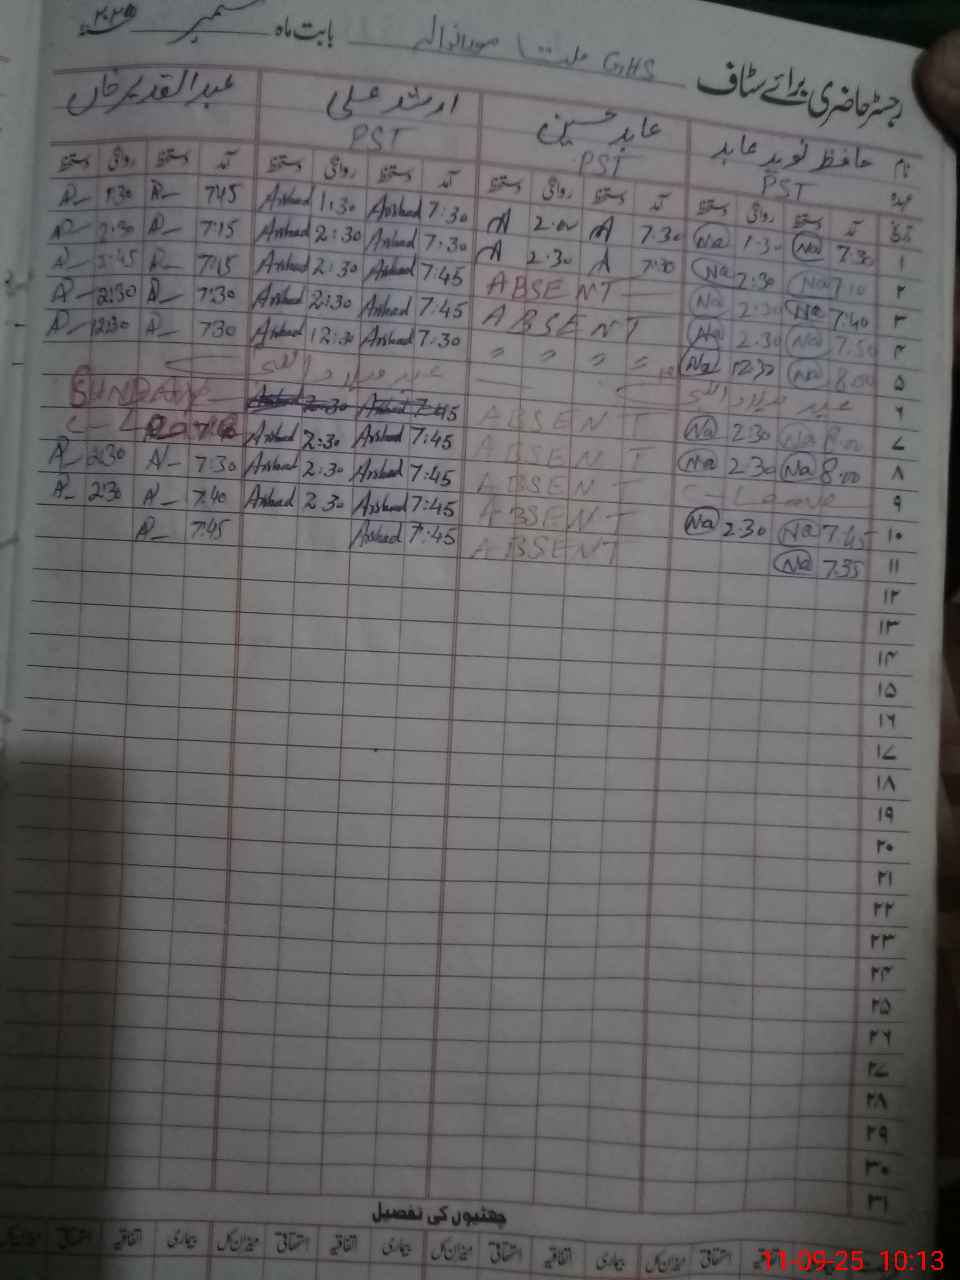 رجسٹر حاضری برائے سٹاف GHS بابت ماہ ستمبر
نام حافظ نوید عابد عابد حسین ارشد علی عبدالقدیر خاں
عہدہ PST PST PST
تاریخ آمد دستخط روانگی دستخط آمد دستخط روانگی دستخط آمد دستخط روانگی دستخط آمد دستخط روانگی دستخط
۱ 7:30 Na 1:30 Na 7:30 A 2:00 A 7:30 Arshad 1:30 Arshad 7:45 A 1:30 A
۲ 7:10 Na 2:30 Na 7:30 A 2:30 A 7:30 Arshad 2:30 Arshad 7:15 A 2:30 A
۳ 7:40 Na 2:30 Na ABSENT 7:45 Arshad 2:30 Arshad 7:15 A A
۴ 7:50 Na 2:30 Na ABSENT 7:45 Arshad 2:30 Arshad 7:30 A 2:30 A
۵ 8:00 Na 12:30 Na " " " " 7:30 Arshad 12:30 Arshad 7:30 A 12:30 A
۶ عید میلاد النبی عید میلاد النبی
۷ 8:00 Na 2:30 Na ABSENT 7:45 Arshad 2:30 Arshad SUNDAY
۸ 8:00 Na 2:30 Na ABSENT 7:45 Arshad 2:30 Arshad
۹ C-Leave ABSENT 7:45 Arshad 2:30 Arshad 7:30 A 2:30 A
۱۰ 7:45 Na 2:30 Na ABSENT 7:45 Arshad 2:30 Arshad 7:40 A 2:30 A
۱۱ 7:35 Na ABSENT 7:45 Arshad 7:45 A
۱۲
۱۳
۱۴
۱۵
۱۶
۱۷
۱۸
۱۹
۲۰
۲۱
۲۲
۲۳
۲۴
۲۵
۲۶
۲۷
۲۸
۲۹
۳۰
۳۱
چھٹیوں کی تفصیل
اتفاقیہ استحقاقی میزان کل بیماری اتفاقیہ استحقاقی میزان کل بیماری اتفاقیہ استحقاقی میزان کل بیماری اتفاقیہ استحقاقی
11-09-25 10:13